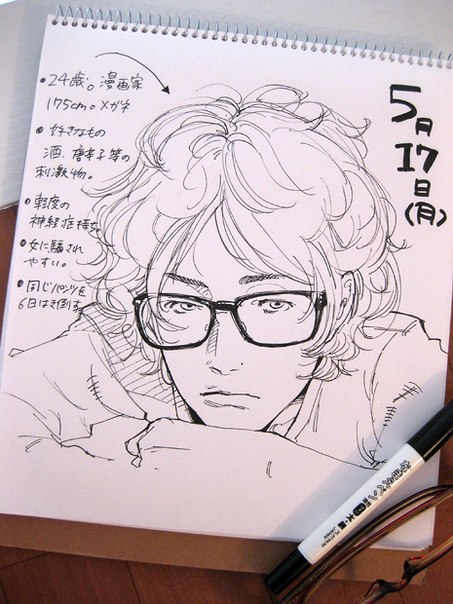 ・24歳。漫画家
175cm。メガネ
・好きなもの
酒、唐辛子等の
刺激物。
・軽度の
神経症持ち
・女に騙され
やすい。
・同じパンツを
6日はき倒す。
5月
17日
(月)
PLATINUM
JAPAN